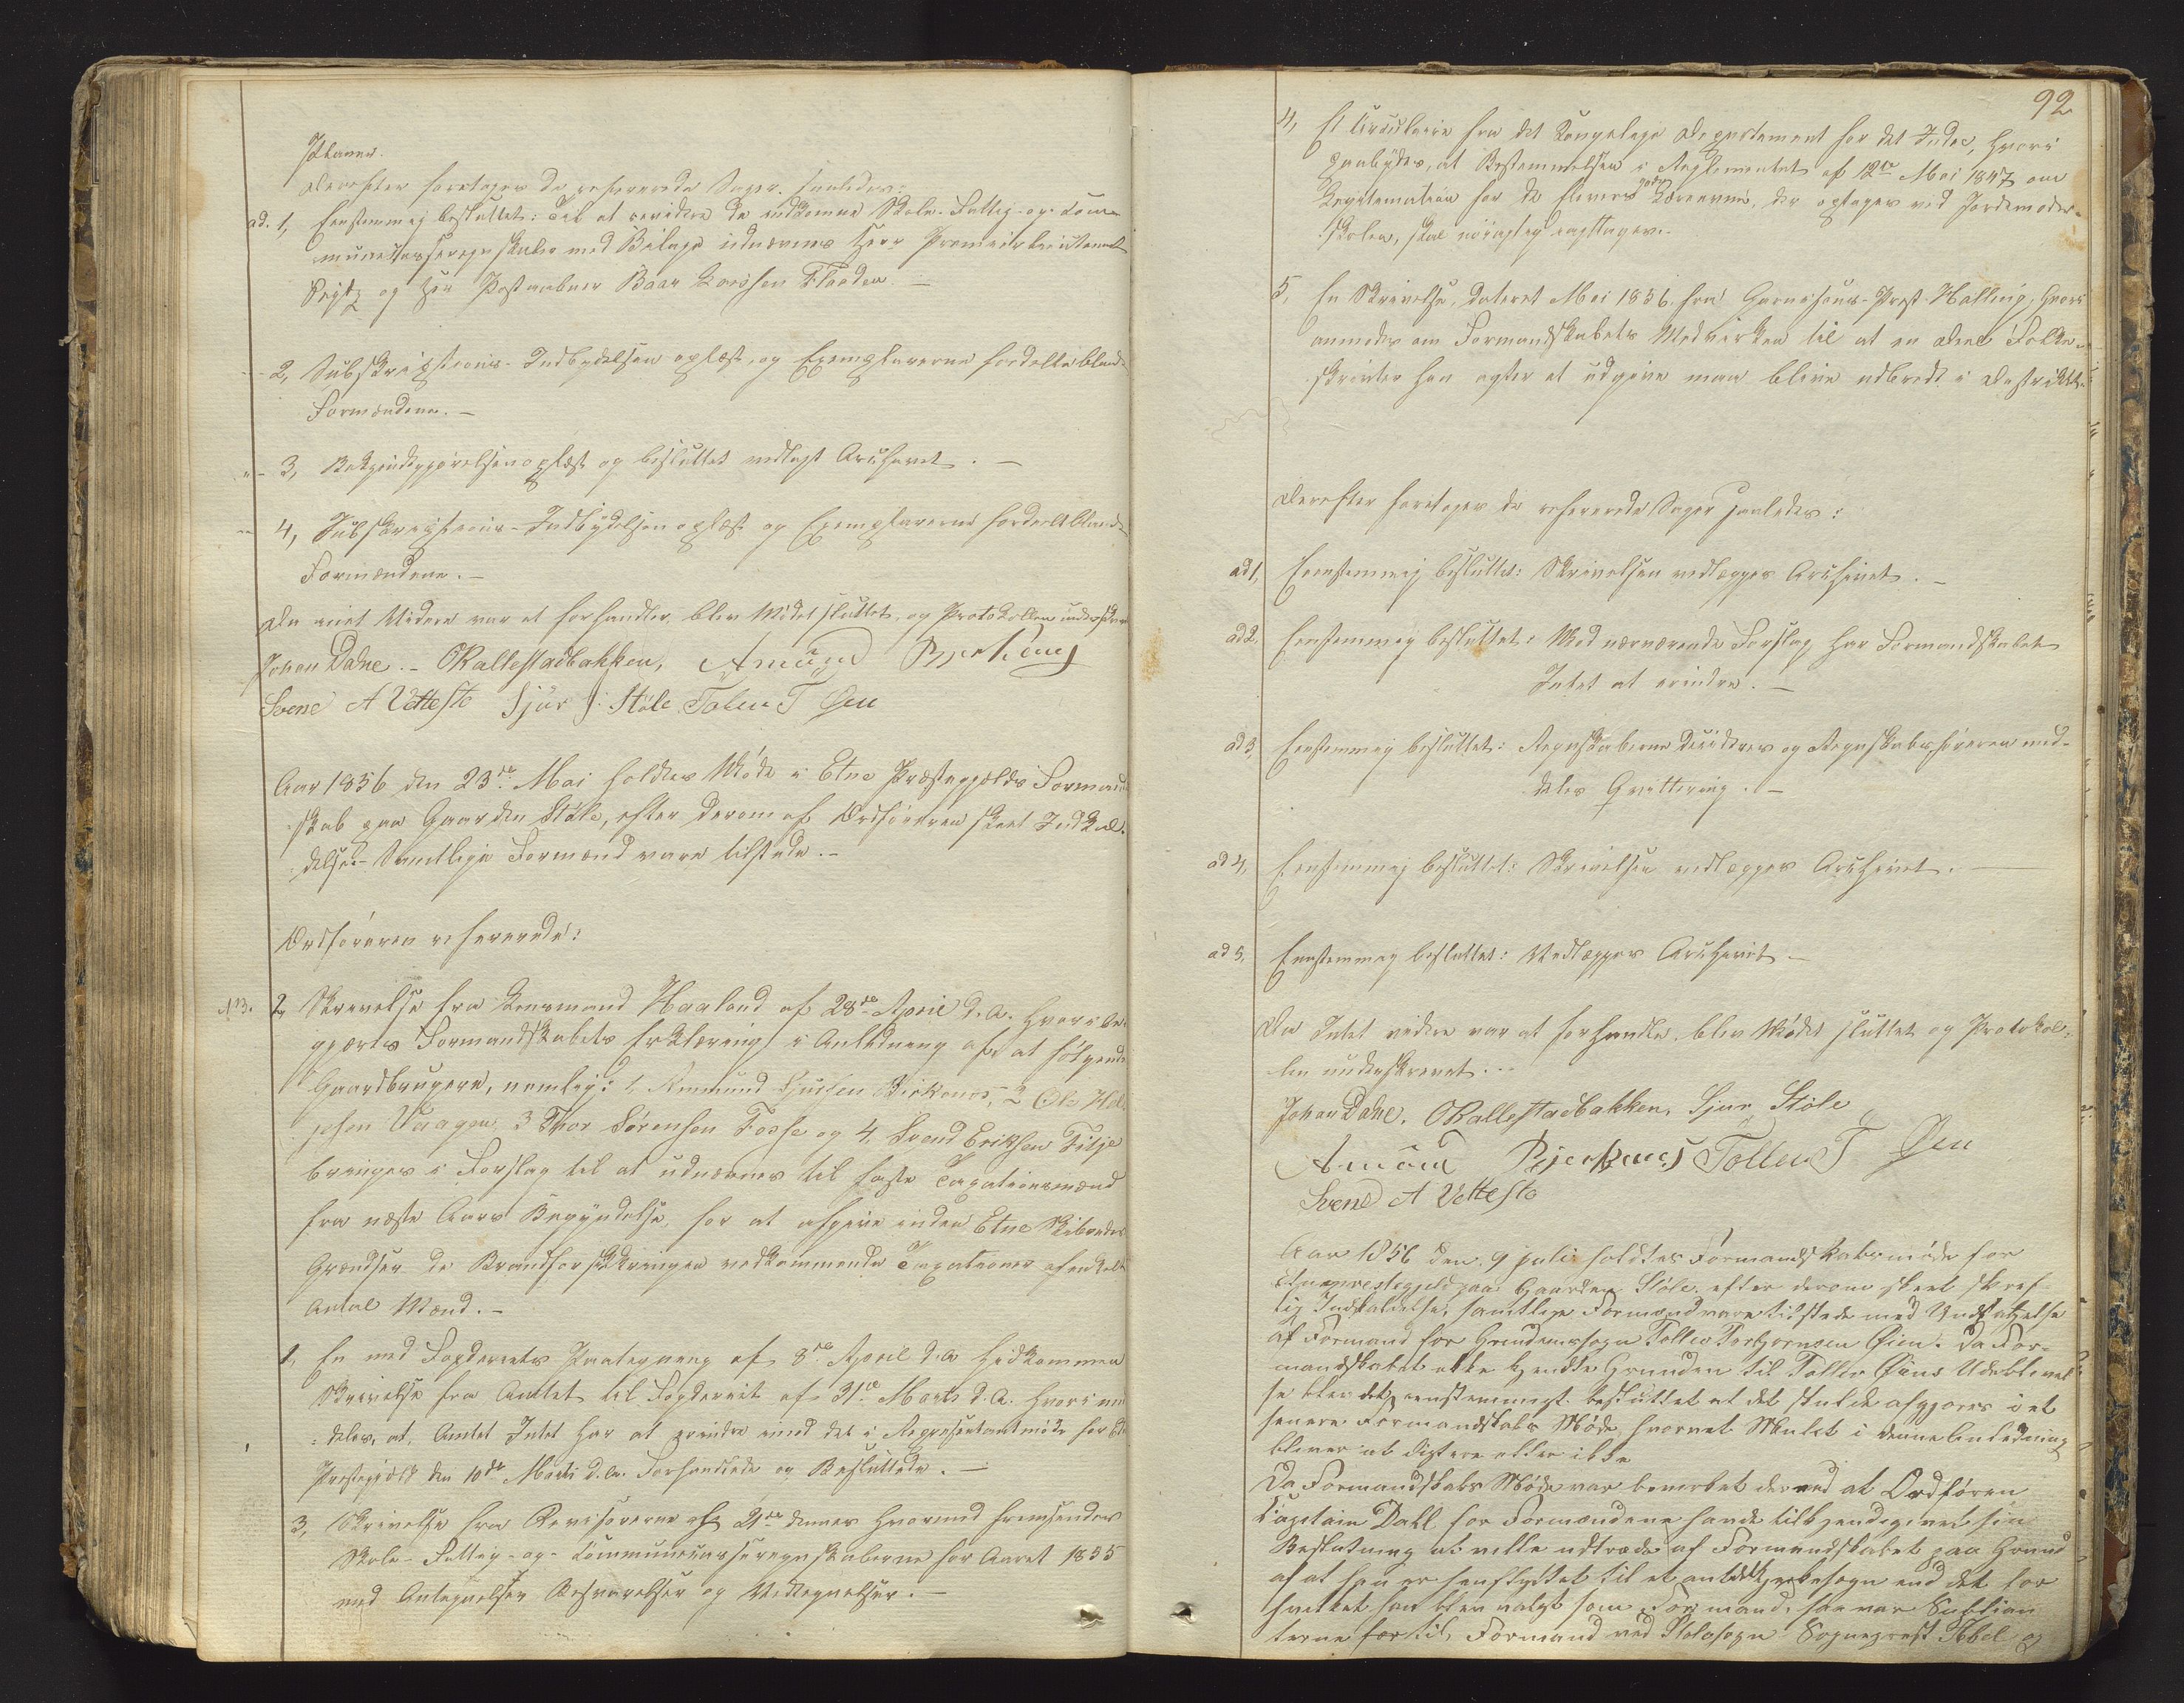 Planen.
Derefter foretoges de refererede Sager saaledes:
ad. 1, Eenstemmig besluttet: Til at revidere de indkomne Skole- Fattig- og Com-
munecasseregnskaber med Bilage udnævnes Herr Premierlieutenant
og Herr Postaabner Baar Larssen Flaaden. —
- 2, Subskriptions-Indbydelsen oplæst, og Exemplarerne fordelte blandt
Formændene. —
- 3, Bekjendtgjørelsen oplæst og besluttet vedlagt Archivet. —
- 4, Subskriptions-Indbydelsen oplæst og Exemplarerne fordeelt blandt
Formændene. —
Da intet Videre var at forhandle, blev Mødet sluttet, og Protokollen underskr
Johan Dahl. - OKallestadbakken, Amund Bjerkenes
Svend A Vettestø Sjur J. Støle Tollev T Øen
Aar 1856 den 23de Mai holdtes Møde i Etne Præstegjelds Formand
skab paa Gaarden Støle, efter derom af Ordføreren skeet Indkal-
delse. - Samtlige Formænd vare tilstede. -
Ordføreren refererede:
N3. 2, Skrivelse fra Lensmand Haaland af 28de April d. A. hvori be-
gjæres Formandskabets Erklæring i Anledning af at følgende
Gaardbrugere, nemlig: 1, Ammund Sjursen Birkenes, 2 Ole Hel
jesen Vaagen, 3 Thor Sørensen Fosse og 4, Svend Eriksen Tilje
bringes i Forslag til at udnævnes til faste Taxationsmænd
fra næste Aars Begyndelse, for at afgive inden Etne Skibredes
Grændser de Brandforsikkringen vedkommende Taxationer
Antal Mænd. -
1, En med Fogderiets Paategning af 8de April d. A. hidkommen
Skrivelse fra Amtet til Fogderiet af 31te Marts d. A. hvori med
deles, at, Amtet Intet har at erindre imod det i Repræsentantmøde for Etne
Prestegjeld den 10de Marts d. A. Forhandlede og Besluttede. —
3, Skrivelse fra Revisorerne af 21de dennes hvormed fremsendes
Skole- Fattig- og Communecasseregnskaberne for Aaret 1855
med Antegnelser Besvarelser og Decisioner. —
92
4, Et Circulaire fra det Kongelige Departement for det Indre, hvori
paabydes, at Bestemmelsen i Reglementet af 12te Mai 1847 om
Legitemation for de Elevers gode Lærenemme, der optages ved Jordemoder-
skolen, skal nøiagtig iagttages. -
5, En Skrivelse, dateret Mai 1856 fra Garnisons-Prest Halling, hvori
anmodes om Formandskabets Medvirken til at en Deel Folke-
skrivter han agter at udgive maa blive udbredt i Distriktet.
Derefter foretoges de refererede Sager saaledes:
ad 1, Eenstemmig besluttet: Skrivelsen vedlægges Archivet. -
ad 2, Eenstemmig besluttet: Mod nærværende Forslag har Formandskabet
Intet at erindre. —
ad 3, Eenstemmig besluttet: Regnskaberne Decideres og Regnskabsføreren med-
deles Qvittering. —
ad 4, Eenstemmig besluttet: Skrivelsen vedlægges Archivet. —
ad 5, Eenstemmig besluttet: Vedlægges Archivet —
Da Intet videre var at forhandle, blev Mødet sluttet og Protokol-
len underskrevet. -
Johan Dahl. OKallestadbakken. Sjur Støle
Amund Bjerkenes Tollev T Øen
Svend A Vettestø
Aar 1856 den 9 juli holdtes Formandskabsmøde for
Etne prestegjeld paa Gaarden Støle, efter derom skeet skref-
tlig Indkaldelse, samtlige Formænd vare tilstede med Undtagelse
af Formand for Grindemssogn Tollev Torbjørnsen Øien. Da For-
mandskabet ikke kjendte Grunden til Tollev Øiens Udeblivel
se blev det eenstemmigt besluttet at det skulde afgjøres i et
senere Formandskabs Møde, hvorvet Mulkt i denne Anledning
bliver at digtere eller ikke
Da Formandskabs Møde var bemerket derved at Ordføren
Capitain Dahl for Formændene havde tilkjendegivet sin
Beslutning at ville udtræde af Formandskabet paa Grund
af at han er henflyttet til et andet sogn end det for
hvilket han blev valgt som Formand, saa var Suplian
terne for til Formand ved Stolesogn Sogneprest Abel og